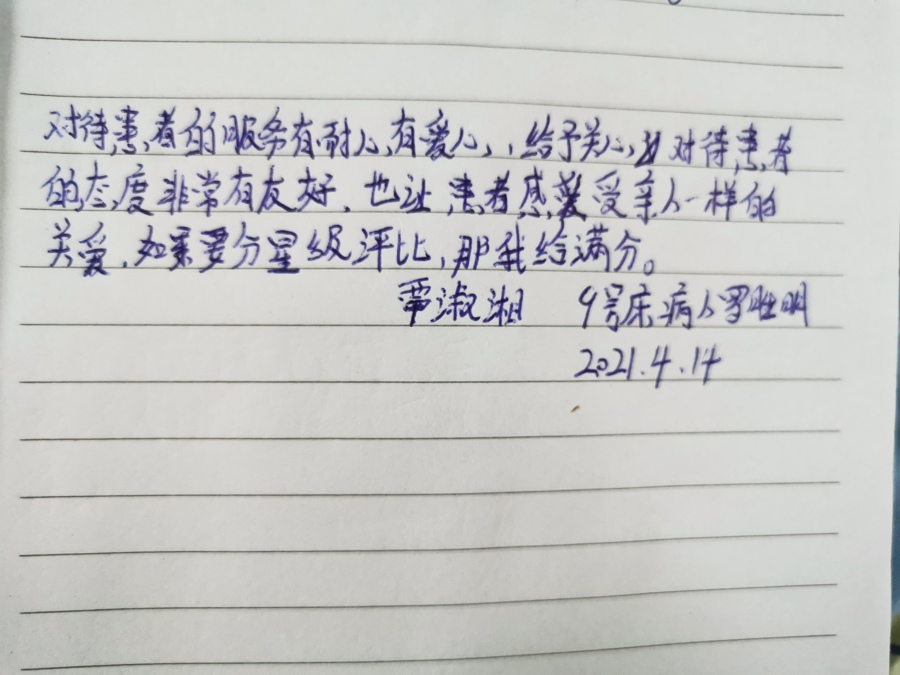 对待患者的服务有耐心,有爱心,,给予关心,对待患者
的态度非常有友好,也让患者感受亲人一样的
关爱,如果要分星级评比,那我给满分。
覃淑湘 9号床病人罗胜明
2021.4.14